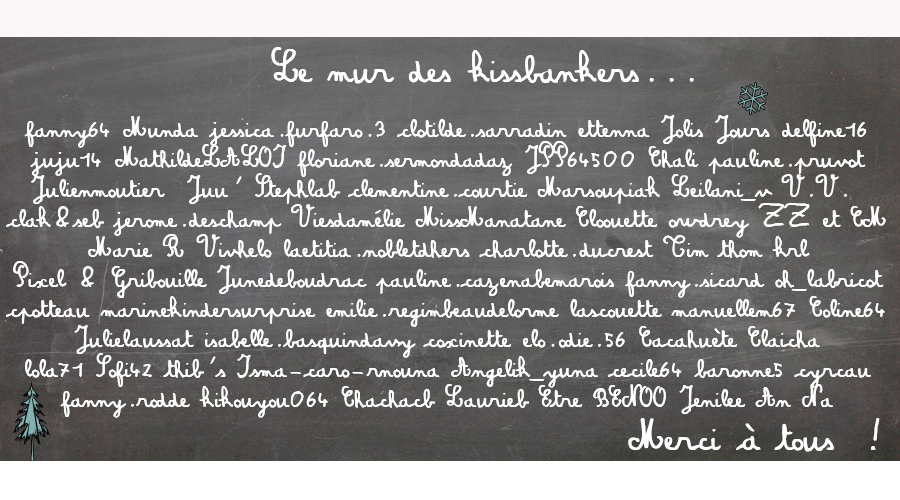 Le mur des kissbankers...
fanny64 Munda jessica.furfaro.3 clotilde.sarradin ettenna Jolis Jours delfine16
juju14 MathildeLALOT floriane.sermondadaz JPP64500 Chali pauline.pruvot
Julienmoutier Juu' Stephlab clementine.courtie Marsoupiak Leilani_v V.V.
clak&seb jerome.deschamp Viesdamélie MissManatane Cloouette owdrey ZZ et CM
Marie R Vivhelo laetitia.nobletdhers charlotte.ducrest Tim thom krl
Pixel & Gribouille Junedeboudrac pauline.cazenabemarois fanny.sicard oh_labricot
cpotteau marinekindersurprise emilie.regimbeaudelorme lascouette manuellem67 Coline64
Julielaussat isabelle.basquindavy coxinette elo.odie.56 Cacahuète Claicha
lola71 Sofi42 thib's Isma-caro-rnouna Angelik_yuna cecile64 baronne5 cyrcau
fanny.rodde kikouyou064 Chachacb Laurieb Etre BENOO Jenilee An Na
Merci à tous !